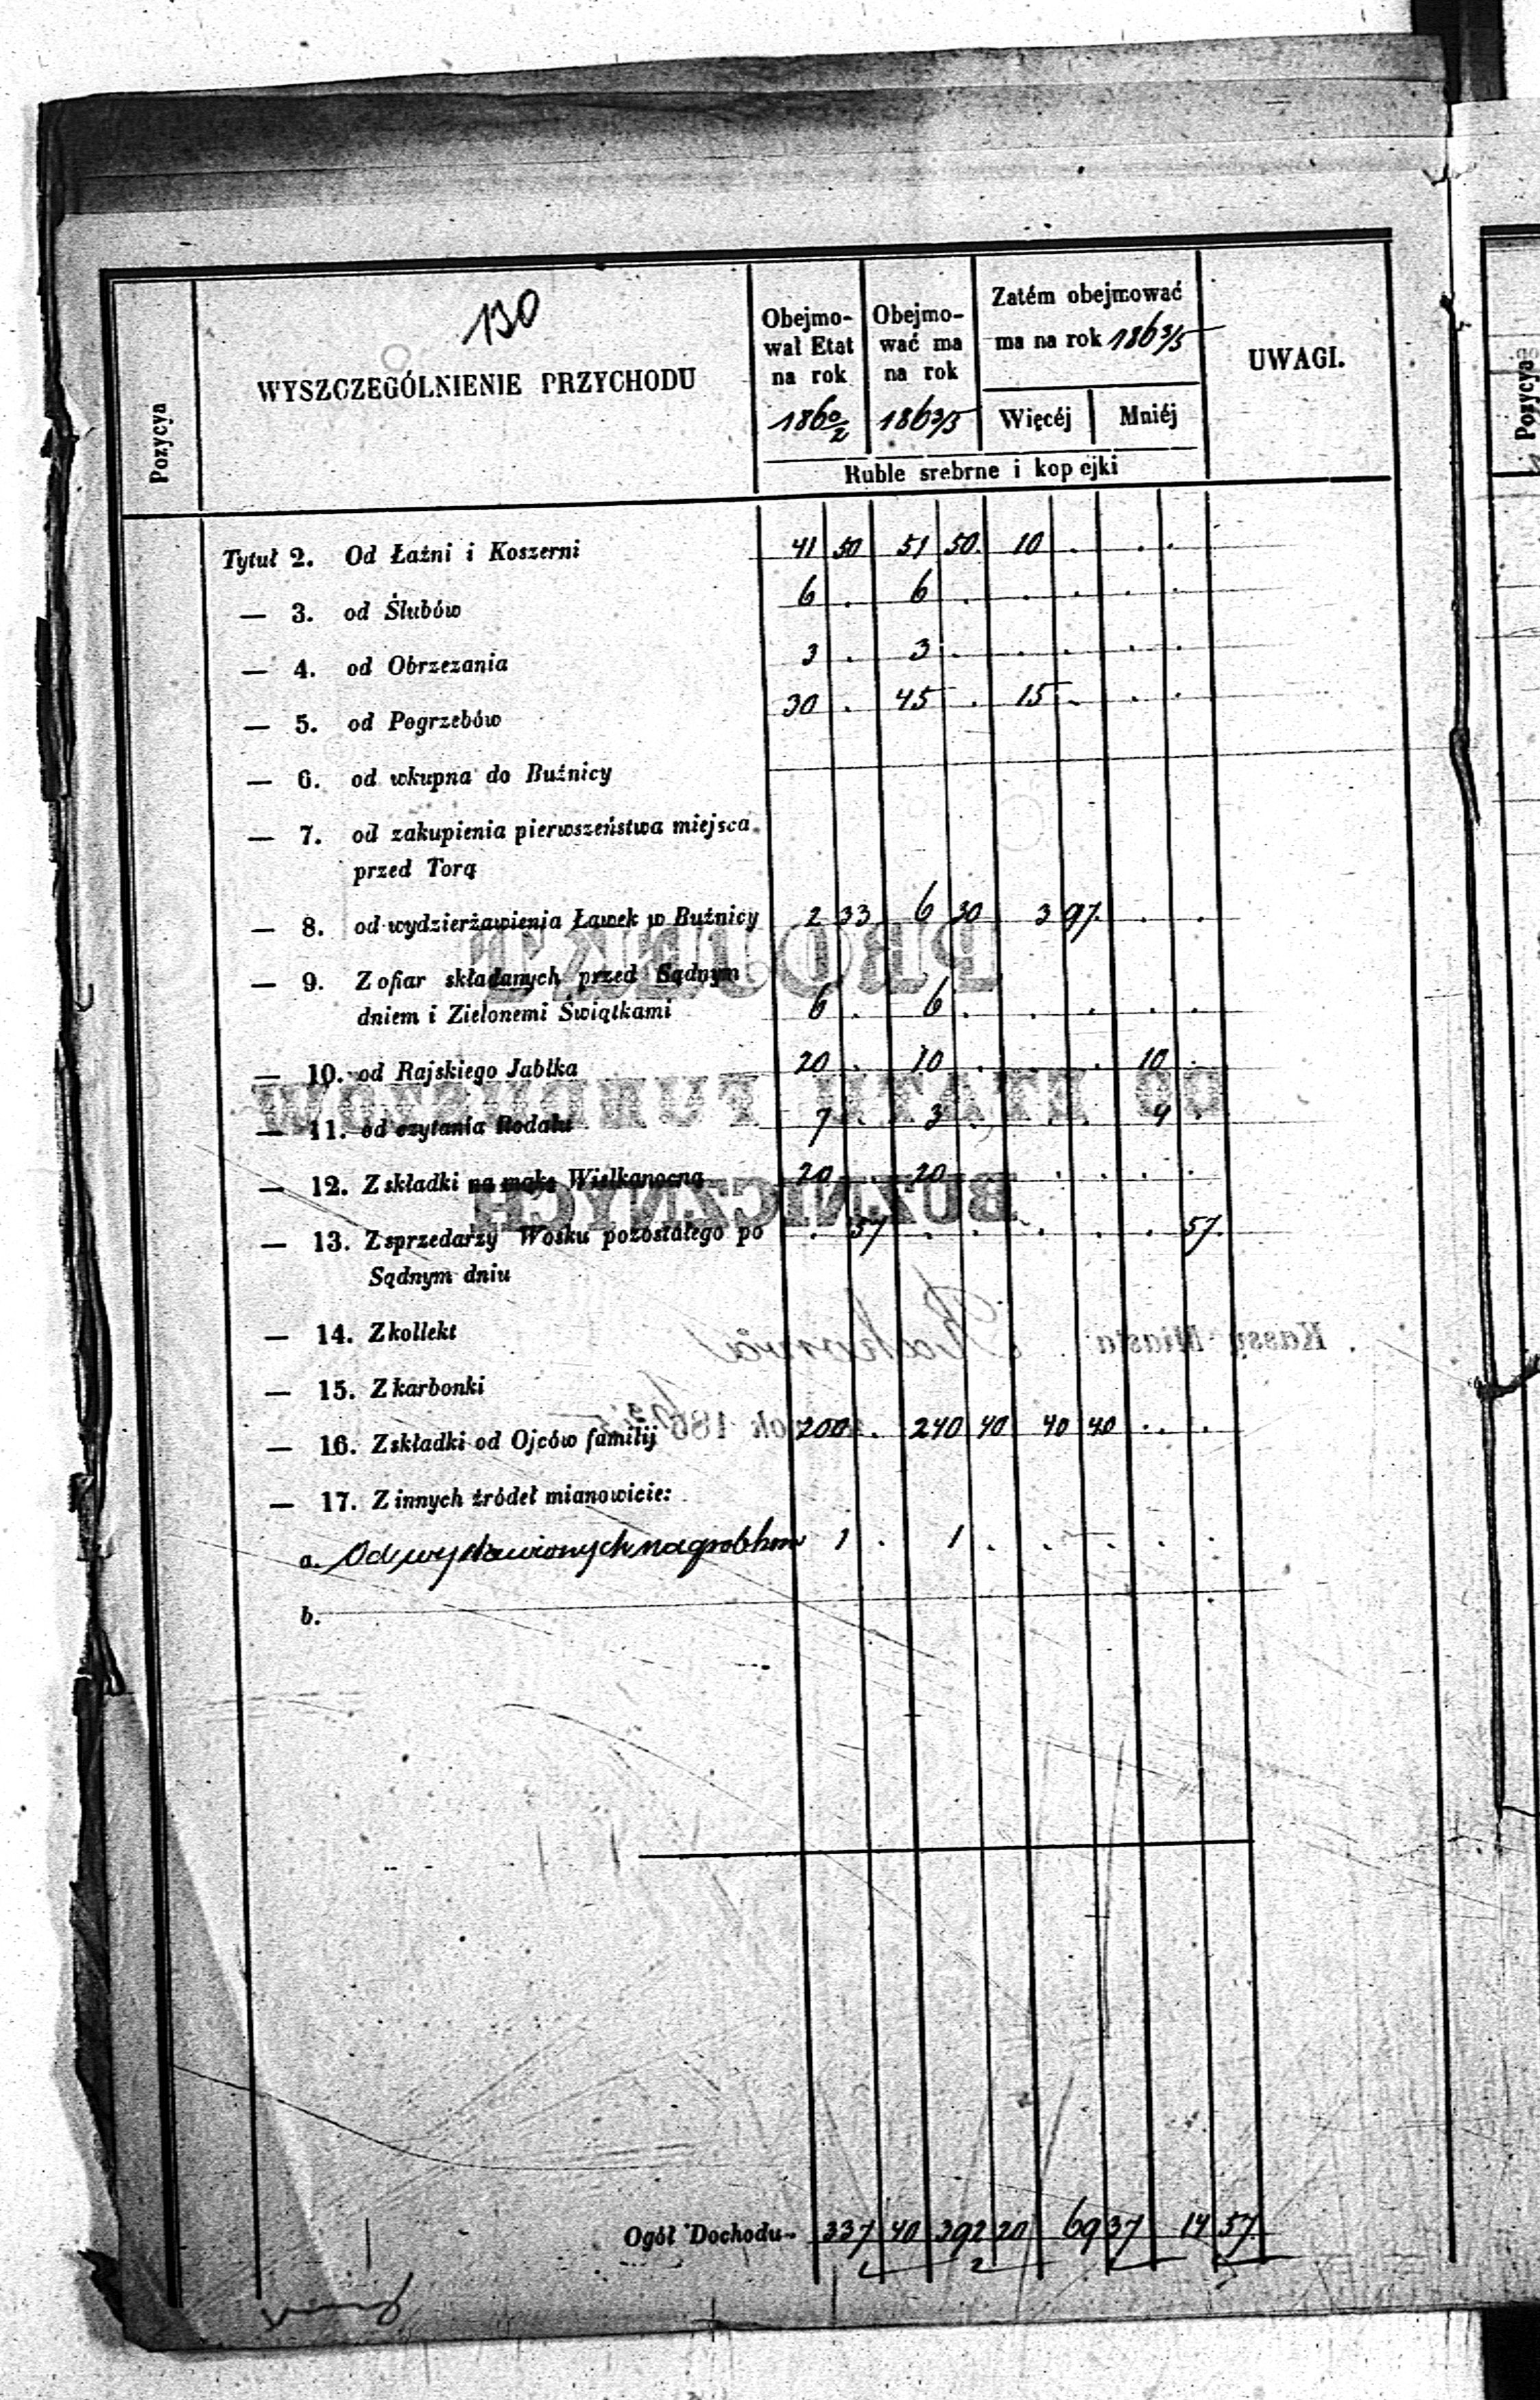 130
Pozycya
WYSZCZEGÓLNIENIE PRZYCHODU
Obejmo-
wał Etat
na rok
1860/2
Obejmo-
wać ma
na rok
1863/5
Zatém obejmować
ma na rok 1863/5
Więcéj Mniéj
UWAGI.
Ruble srebrne i kopejki
Tytuł 2. Od Łaźni i Koszerni 41 50 51 50. 10 . . .
— 3. od Ślubów 6 . 6 . . . . .
— 4. od Obrzezania 3 . 3 . . . . .
— 5. od Pogrzebów 30 . 45 . 15 . . .
— 6. od wkupna do Buźnicy
— 7. od zakupienia pierwszeństwa miejsca
przed Torą
— 8. od wydzierżawienia Ławek w Buźnicy 2 33 6 30 3 97. . .
— 9. Z ofiar składanych przed Sądnym
dniem i Zielonemi Świątkami 6 . 6 . . . . .
— 10. od Rajskiego Jabłka 20 . 10 . . . 10 .
— 11. od czytania Rodału 7 . 3 . . . 4 .
— 12. Z składki na mąkę Wielkanocną 20 . 20 . . . . .
— 13. Z sprzedarzy Wosku pozostałego po . 57 . . . . . 57.
Sądnym dniu
— 14. Z kollekt
— 15. Z karbonki
— 16. Z składki od Ojców familij 200 . 240 40 40 40 . .
— 17. Z innych źródeł mianowicie:
a. Od wystawionych nagrobków 1 . 1 . . . . .
b.
Ogół Dochodu 337 40 392 20 69 37 14 57
PROJEKT
DO ETATU FUNDUSZÓW
BUŹNICZNYCH
Kassy Miasta Rakowa
rok 1863/5
Pozycya